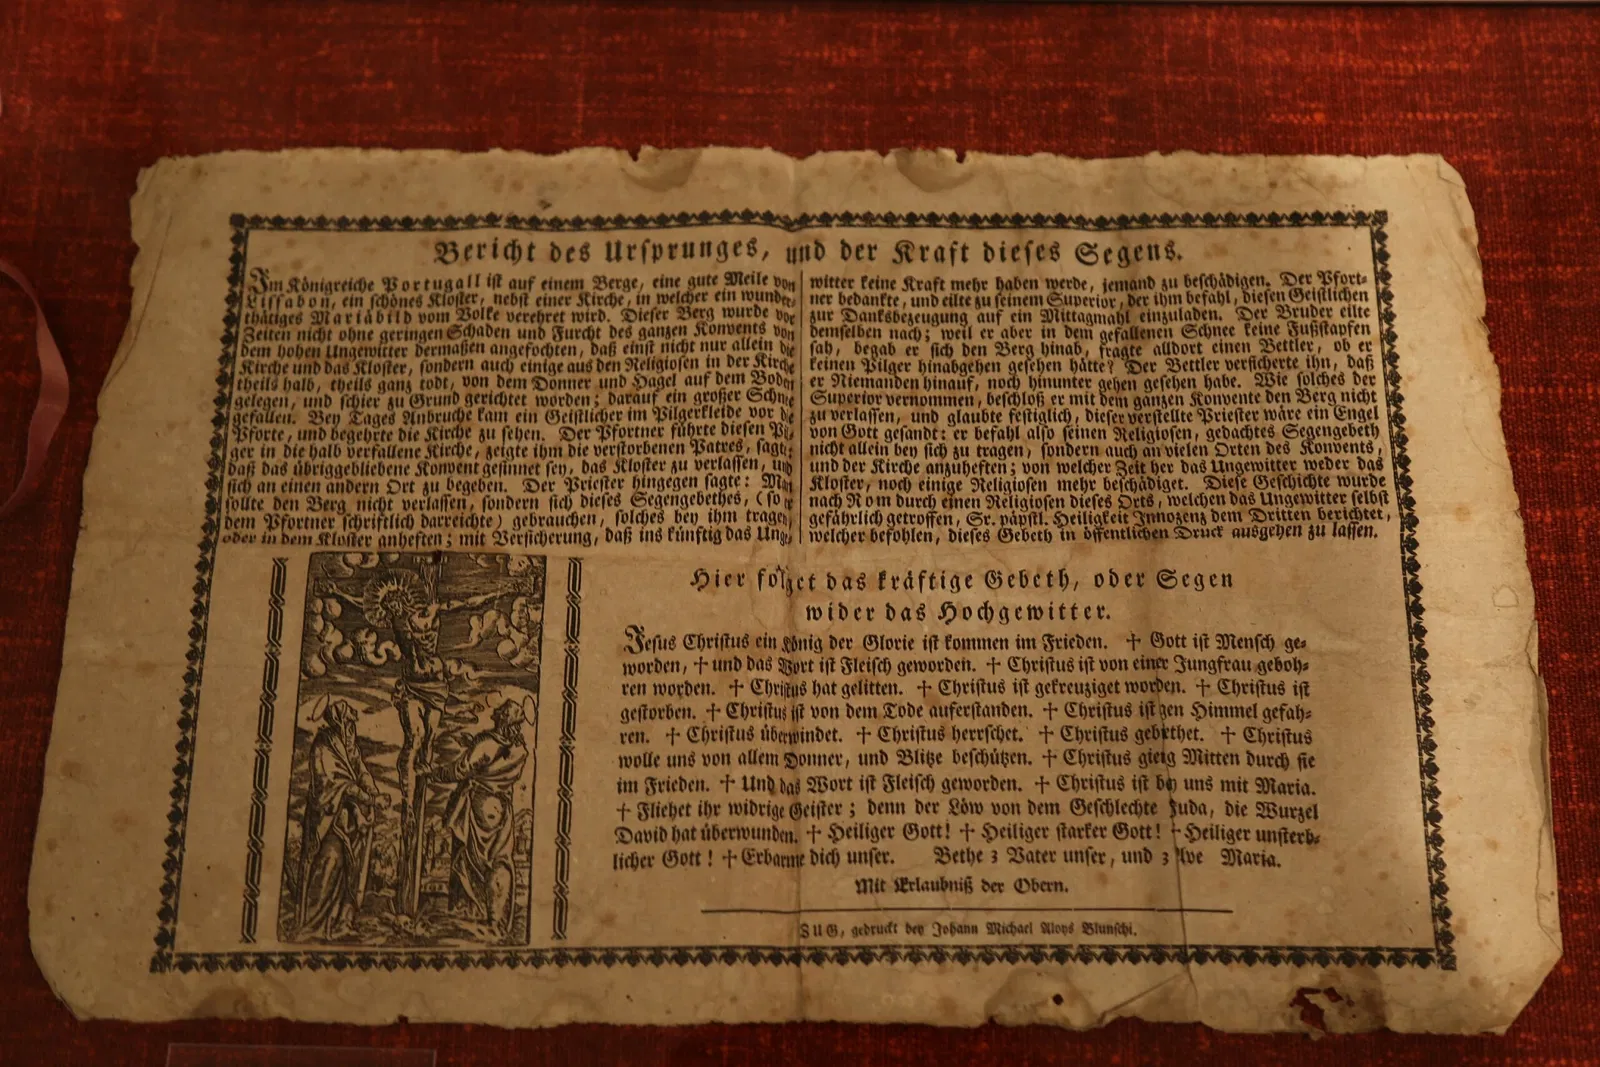 Bericht des Ursprunges, und der Kraft dieses Segens.
Im Königreiche Portugall ist auf einem Berge, eine gute Meile von
Lissabon, ein schönes Kloster, nebst einer Kirche, in welcher ein wunder-
thätiges Mariäbild vom Volke verehret wird. Dieser Berg wurde vor
Zeiten nicht ohne geringen Schaden und Furcht des ganzen Konvents von
dem hohen Ungewitter dermaßen angefochten, daß einst nicht nur allein die
Kirche und das Kloster, sondern auch einige aus den Religiosen in der Kirche
theils halb, theils ganz todt, von dem Donner und Hagel auf dem Boden
gelegen, und schier zu Grund gerichtet worden; darauf ein großer Schnee
gefallen. Bey Tages Anbruche kam ein Geistlicher im Pilgerkleide vor die
Pforte, und begehrte die Kirche zu sehen. Der Pförtner führte diesen Pil-
ger in die halb verfallene Kirche, zeigte ihm die verstorbenen Patres, sagte:
daß das übriggebliebene Konvent gesinnet sey, das Kloster zu verlassen, und
sich an einen andern Ort zu begeben. Der Priester hingegen sagte: Man
sollte den Berg nicht verlassen, sondern sich dieses Segengebethes, (so er
dem Pfortner schriftlich darreichte) gebrauchen, solches bey ihm tragen,
oder in dem Kloster anheften; mit Versicherung, daß ins künftig das Unge-
witter keine Kraft mehr haben werde, jemand zu beschädigen. Der Pfort-
ner bedankte, und eilte zu seinem Superior, der ihm befahl, diesen Geistlichen
zur Danksbezeugung auf ein Mittagmahl einzuladen. Der Bruder eilte
demselben nach; weil er aber in dem gefallenen Schnee keine Fußstapfen
sah, begab er sich den Berg hinab, fragte alldort einen Bettler, ob er
keinen Pilger hinabgehen gesehen hätte? Der Bettler versicherte ihn, daß
er Niemanden hinauf, noch hinunter gehen gesehen habe. Wie solches der
Superior vernommen, beschloß er mit dem ganzen Konvente den Berg nicht
zu verlassen, und glaubte festiglich, dieser verstellte Priester wäre ein Engel
von Gott gesandt: er befahl also seinen Religiosen, gedachtes Segengebeth
nicht allein bey sich zu tragen, sondern auch an vielen Orten des Konvents,
und der Kirche anzuheften; von welcher Zeit her das Ungewitter weder das
Kloster, noch einige Religiosen mehr beschädiget. Diese Geschichte wurde
nach Rom durch einen Religiosen dieses Orts, welchen das Ungewitter selbst
gefährlich getroffen, Sr. päpstl. Heiligkeit Innozenz dem Dritten berichtet,
welcher befohlen, dieses Gebeth in öffentlichen Druck ausgehen zu lassen.
Hier folget das kräftige Gebeth, oder Segen
wider das Hochgewitter.
Jesus Christus ein König der Glorie ist kommen im Frieden. † Gott ist Mensch ge-
worden, † und das Wort ist Fleisch geworden. † Christus ist von einer Jungfrau geboh-
ren worden. † Christus hat gelitten. † Christus ist gekreuziget worden. † Christus ist
gestorben. † Christus ist von dem Tode auferstanden. † Christus ist gen Himmel gefah-
ren. † Christus überwindet. † Christus herrschet. † Christus gebiethet. † Christus
wolle uns von allem Donner, und Blitze beschützen. † Christus gieng Mitten durch sie
im Frieden. † Und das Wort ist Fleisch geworden. † Christus ist bey uns mit Maria.
† Fliehet ihr widrige Geister; denn der Löw von dem Geschlechte Juda, die Wurzel
David hat überwunden. † Heiliger Gott! † Heiliger starker Gott! † Heiliger unsterb-
licher Gott! † Erbarme dich unser. Bethe 3 Vater unser, und 3 Ave Maria.
Mit Erlaubniß der Obern.
ZUG, gedruckt bey Johann Michael Aloys Blunschi.